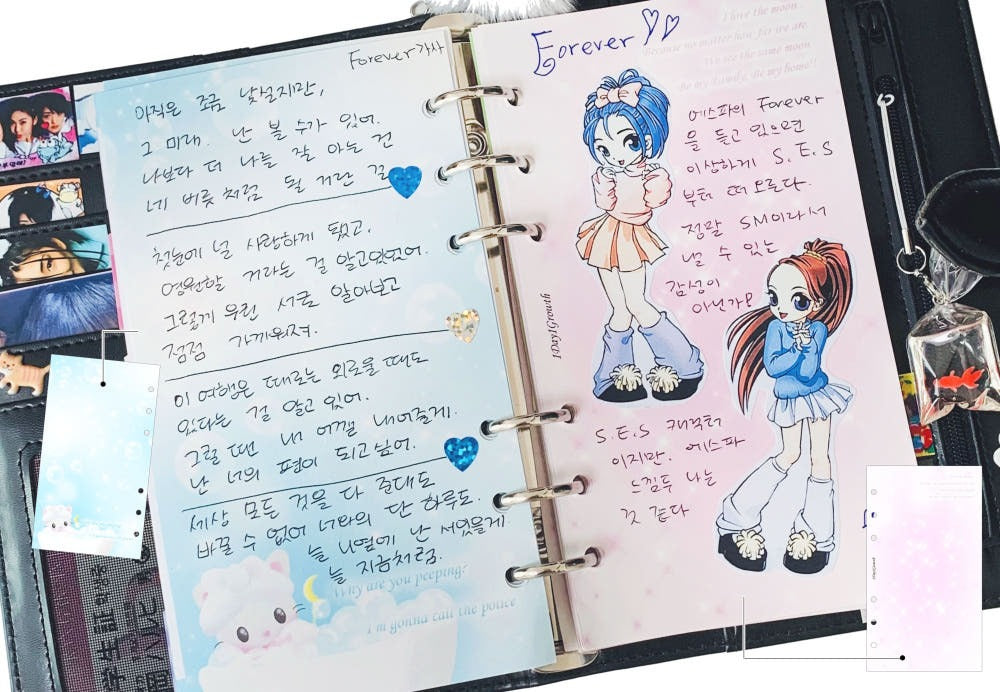 Forever가사
아직은 조금 낯설지만,
그 미래. 난 볼 수가 있어.
나보다 더 나를 잘 아는 건
네 버릇처럼 될 거란 걸
첫눈에 널 사랑하게 됐고,
영원할 거라는 걸 알고있었어.
그렇게 우린 서로 알아보고
점점 가까워졌져.
이 여행은 때로는 외로울 때도
있다는 걸 알고 있어.
그럴 땐 내 어깰 내어줄게.
난 너의 편이 되고싶어.
세상 모든 것을 다 준대도
바꿀 수 없어 너와의 단 하루도.
늘 니옆에 난 서있을게
늘 지금처럼.
Why are you peeping?
I'm gonna call the police
Forever
I love the moon...
Because no matter how far we are
We see the same moon
Be my family, Be my home!!
에스파의 Forever
을 듣고 있으면
이상하게 S.E.S
부터 떠오른다.
정말 SM이라서
낼 수 있는
감성이
아닌가?
S.E.S 캐릭터
이지만. 에스파
느낌두 나는
것 같다